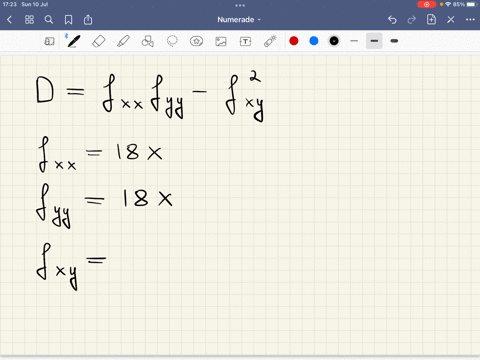 17:23 Sun 10 Jul
85%
Numerade
D = f_xx f_yy - f_xy^2
f_xx = 18x
f_yy = 18x
f_xy =